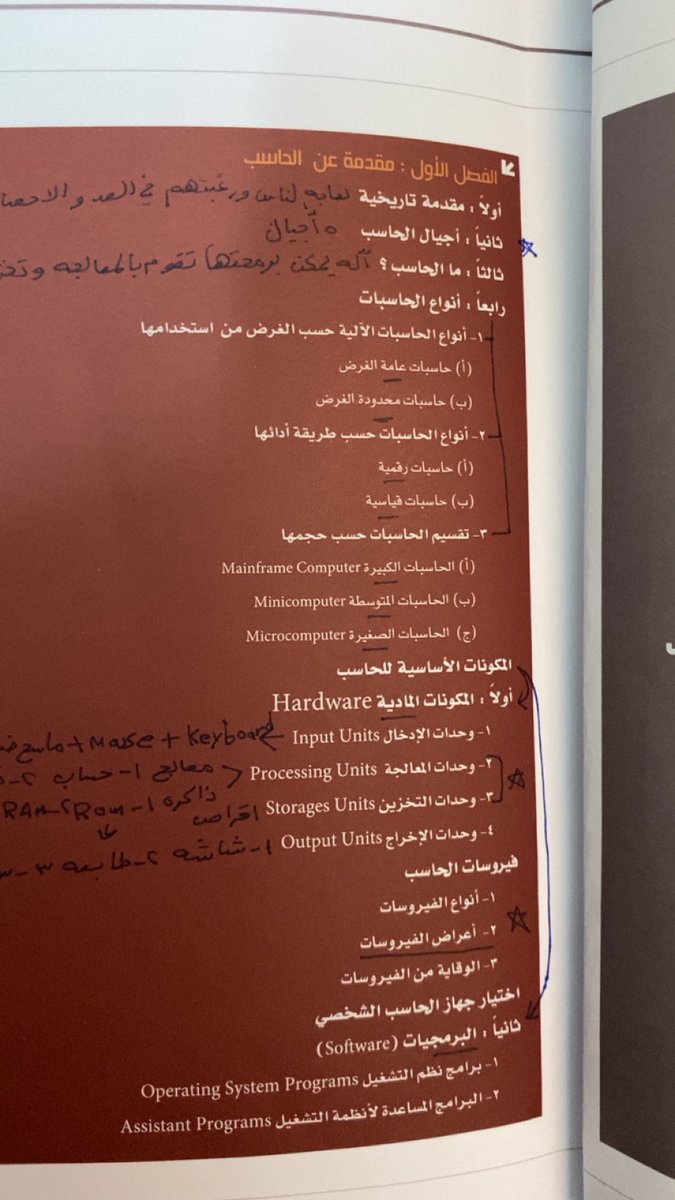 الفصل الأول : مقدمة عن الحاسب
أولاً : مقدمة تاريخية لناس ورغبتهم في العد و
ثانياً : أجيال الحاسب ٥ أجيال
ثالثاً : ما الحاسب؟ آله يمكن برمجتها تقوم بالمعالجه و
رابعاً : أنواع الحاسبات
١- أنواع الحاسبات الآلية حسب الغرض من استخدامها
(أ) حاسبات عامة الغرض
(ب) حاسبات محدودة الغرض
٢- أنواع الحاسبات حسب طريقة أدائها
(أ) حاسبات رقمية
(ب) حاسبات قياسية
٣- تقسيم الحاسبات حسب حجمها
(أ) الحاسبات الكبيرة Mainframe Computer
(ب) الحاسبات المتوسطة Minicomputer
(ج) الحاسبات الصغيرة Microcomputer
المكونات الأساسية للحاسب
أولاً : المكونات المادية Hardware
١- وحدات الإدخال Input Units Keyboard + Mouse +
٢- وحدات المعالجة Processing Units معالج ١- حساب ٢-
٣- وحدات التخزين Storages Units اقراص ذاكره ١- Rom ٢- RAM
٤- وحدات الإخراج Output Units ١- شاشه ٢- طابعه ٣-
فيروسات الحاسب
١- أنواع الفيروسات
٢- أعراض الفيروسات
٣- الوقاية من الفيروسات
اختيار جهاز الحاسب الشخصي
ثانياً : البرمجيات (Software)
١- برامج نظم التشغيل Operating System Programs
٢- البرامج المساعدة لأنظمة التشغيل Assistant Programs